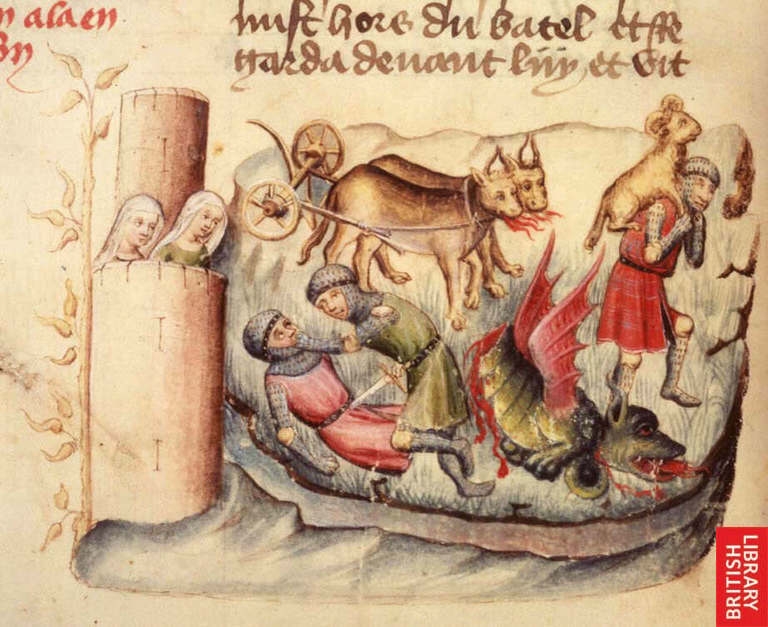 alaen
hors du batel Et re
garda devant luy et vit
BRITISH
LIBRARY